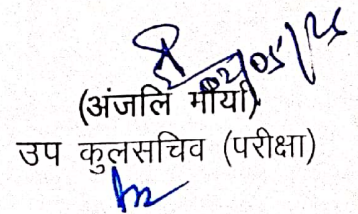 02/05/25
(अंजलि मौर्या)
उप कुलसचिव (परीक्षा)